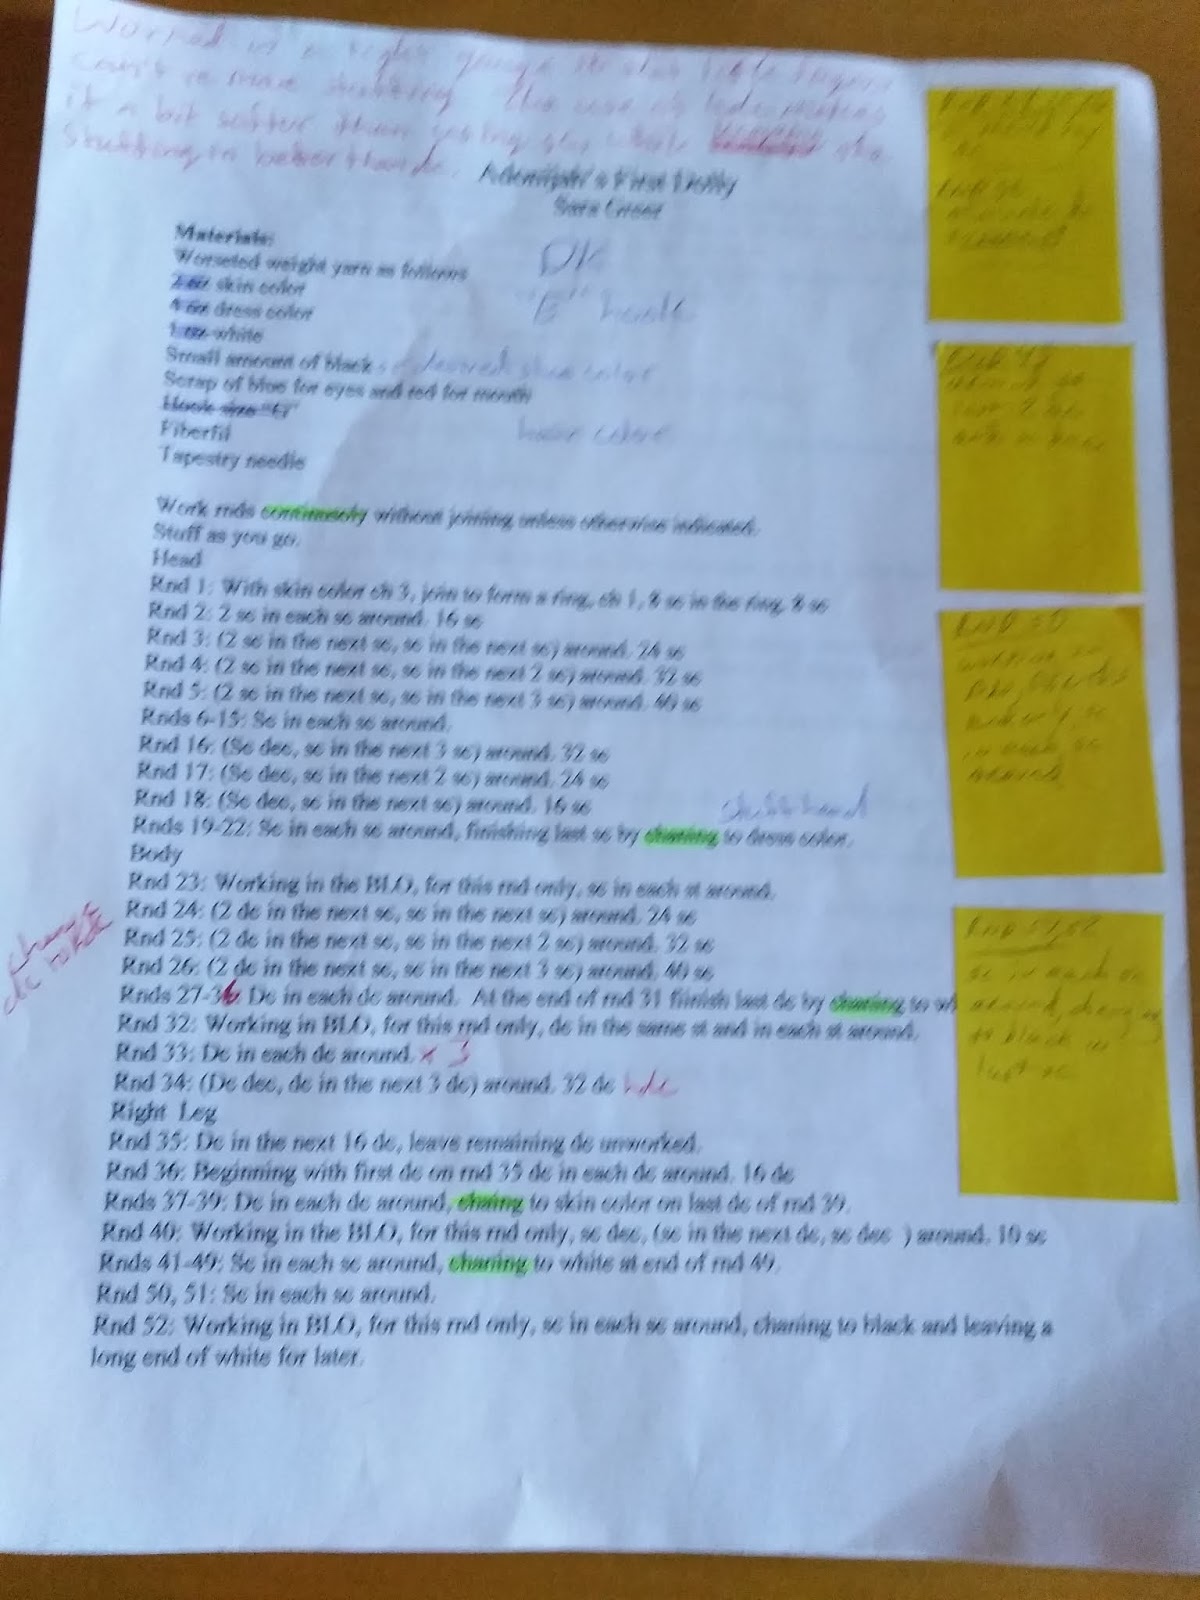 Worked in a tighter gauge
it a bit softer than
Stuffing in better
First Dolly
Sara Greer
Materials:
Worseted weight yarn as follows
DK
2 oz skin color
"E" hook
4 oz dress color
1 oz white
Small amount of black
shoe color
Scrap of blue for eyes and red for mouth
Hook size "G"
Fiberfil
hair color
Tapestry needle
Work rnds continuously without joining unless otherwise indicated.
Stuff as you go.
Head
Rnd 1: With skin color ch 3, join to form a ring, ch 1, 8 sc in the ring. 8 sc
Rnd 2: 2 sc in each sc around. 16 sc
Rnd 3: (2 sc in the next sc, sc in the next sc) around. 24 sc
Rnd 4: (2 sc in the next sc, sc in the next 2 sc) around. 32 sc
Rnd 5: (2 sc in the next sc, sc in the next 3 sc) around. 40 sc
Rnds 6-15: Sc in each sc around.
Rnd 16: (Sc dec, sc in the next 3 sc) around. 32 sc
Rnd 17: (Sc dec, sc in the next 2 sc) around. 24 sc
Rnd 18: (Sc dec, sc in the next sc) around. 16 sc
stuff head
Rnds 19-22: Sc in each sc around, finishing last sc by chaning to dress color.
Body
Rnd 23: Working in the BLO, for this rnd only, sc in each st around.
Rnd 24: (2 dc in the next sc, sc in the next sc) around. 24 sc
change
dc to hdc
Rnd 25: (2 dc in the next sc, sc in the next 2 sc) around. 32 sc
Rnd 26: (2 dc in the next sc, sc in the next 3 sc) around. 40 sc
Rnds 27-36 Dc in each dc around. At the end of rnd 31 finish last dc by chaning to wh
Rnd 32: Working in BLO, for this rnd only, dc in the same st and in each st around.
Rnd 33: Dc in each dc around. x 3
Rnd 34: (Dc dec, dc in the next 3 dc) around. 32 dc hdc
Right Leg
Rnd 35: Dc in the next 16 dc, leave remaining dc unworked.
Rnd 36: Beginning with first dc on rnd 35 dc in each dc around. 16 dc
Rnds 37-39: Dc in each dc around, chaing to skin color on last dc of rnd 39.
Rnd 40: Working in the BLO, for this rnd only, sc dec, (sc in the next dc, sc dec ) around. 10 sc
Rnds 41-49: Sc in each sc around, chaning to white at end of rnd 49.
Rnd 50, 51: Sc in each sc around.
Rnd 52: Working in BLO, for this rnd only, sc in each sc around, chaning to black and leaving a
long end of white for later.
RND 50
working in
BLO, for this
rnd only, sc
in each sc
around
RND 51, 52
sc in each sc
around, changing
to black in
last sc